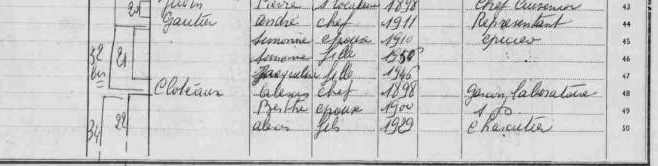 Pierre s. locataire 1898 Chef cuisinier 43
Gautier André chef 1911 Représentant 44
Simonne épouse 1910 épicier 45
Simone fille 46
Jacqueline fille 1946 47
52 bis 21 Cloteaux Alexis chef 1898 garçon laboratoire 48
Berthe épouse 1900 49
34 22 Alexis fils 1929 charcutier 50